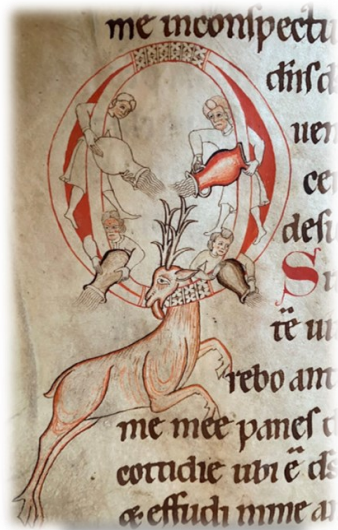 me inconspectu
dn̄s d
uen
cer
desi
Si
tē ui
rebo ant
me mee panes d
cottidie ubi ē ds
& effudi inme an